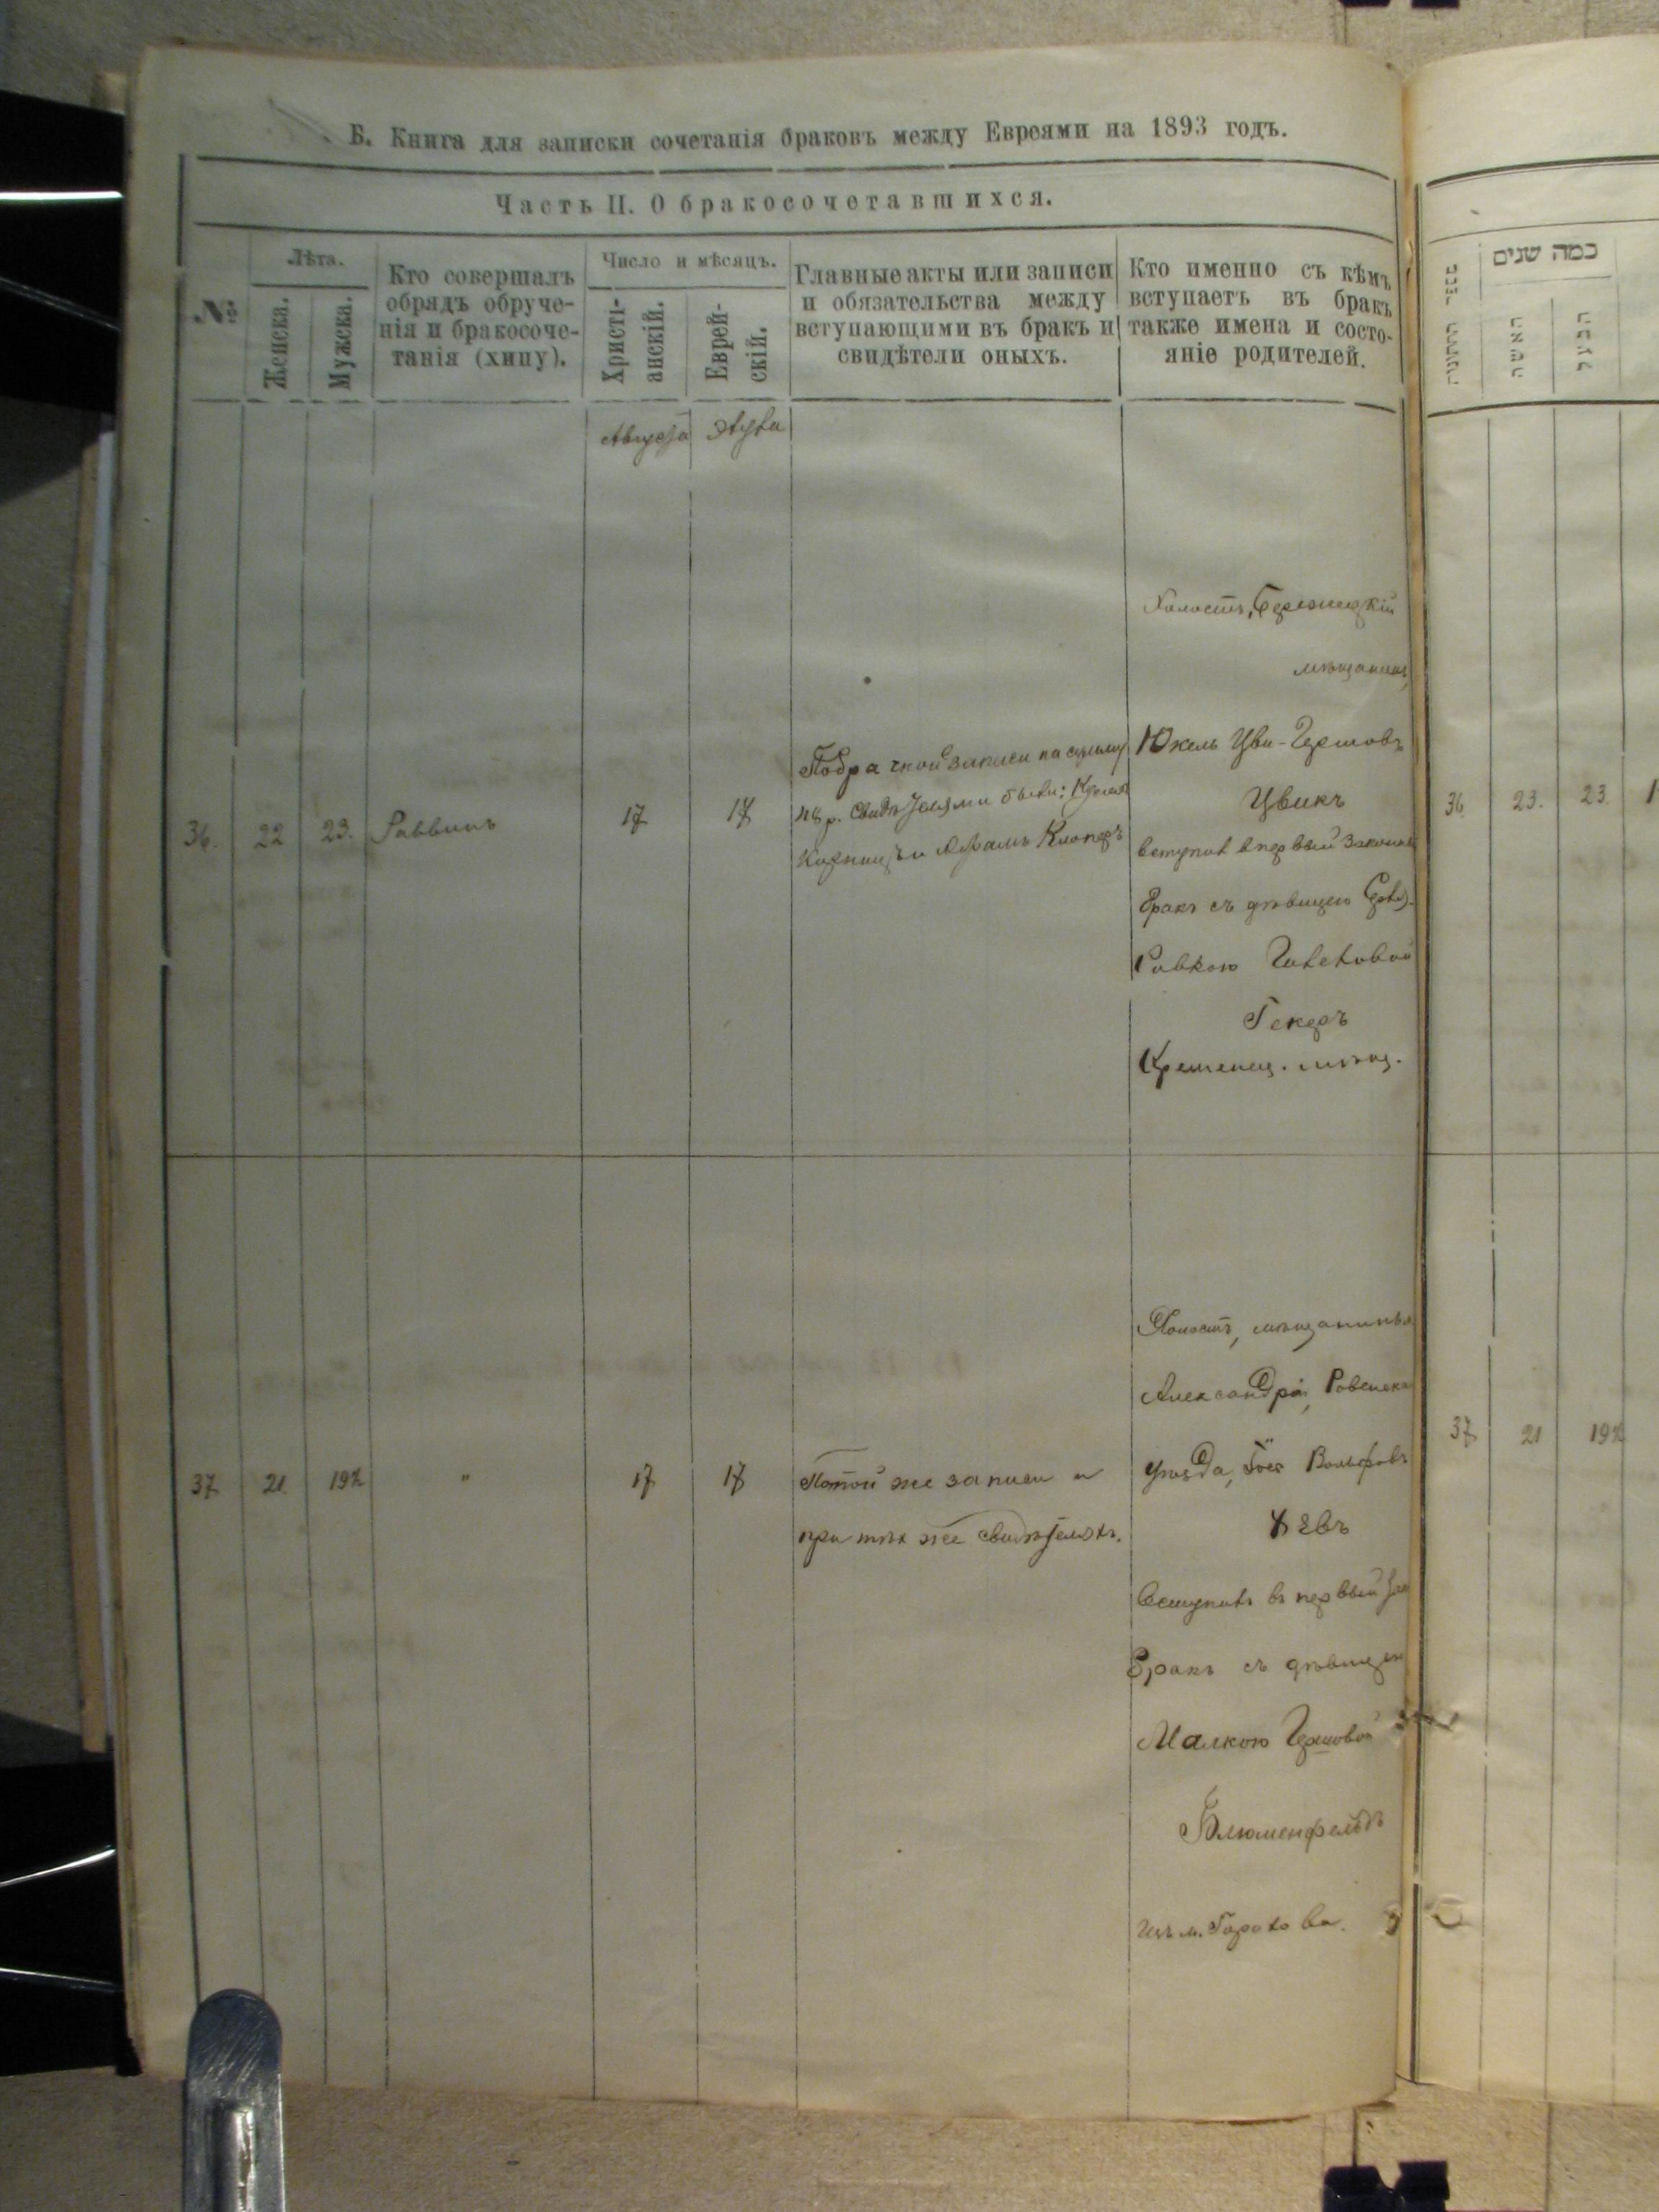 Б. Книга для записки сочетанія браковъ между Евреями на 1893 годъ.
Часть II. О бракосочетавшихся.
№
Лѣта.
Женска.
Мужска.
Кто совершалъ
обрядъ обруче-
нія и бракосоче-
танія (хипу).
Число и мѣсяцъ.
Христі-
анскій.
Еврей-
скій.
Главные акты или записи
и обязательства между
вступающими въ бракъ и
свидѣтели оныхъ.
Кто именно съ кѣмъ
вступаетъ въ бракъ
также имена и состо-
яніе родителей.
Августа
36.
22
23.
Раввинъ
17
17
Побрачной записи на сумму
48 р. Свидѣтелями были:
и Абрамъ Клоперъ
Холостъ,
мѣщанинъ,
Юкель Цви-Гершовъ
Цвикъ
вступилъ въ первый законный
бракъ съ дѣвицею
Ривкою
Гекеръ
Кременец. мѣщ.
37
21.
19½
"
17
17
Потой же записи и
при тѣх же свидѣтеляхъ.
Холостъ, мѣщанинъ м.
Александріи, Ровенска
уѣзда, Вольфовъ
вступилъ въ первый зак
бракъ съ дѣвицею
Малкою Гершовой
Блюменфельдъ
изъ м.
מספר החתונה
כמה שנים
האשה
הבעל
36
23.
23.
37
21
19½